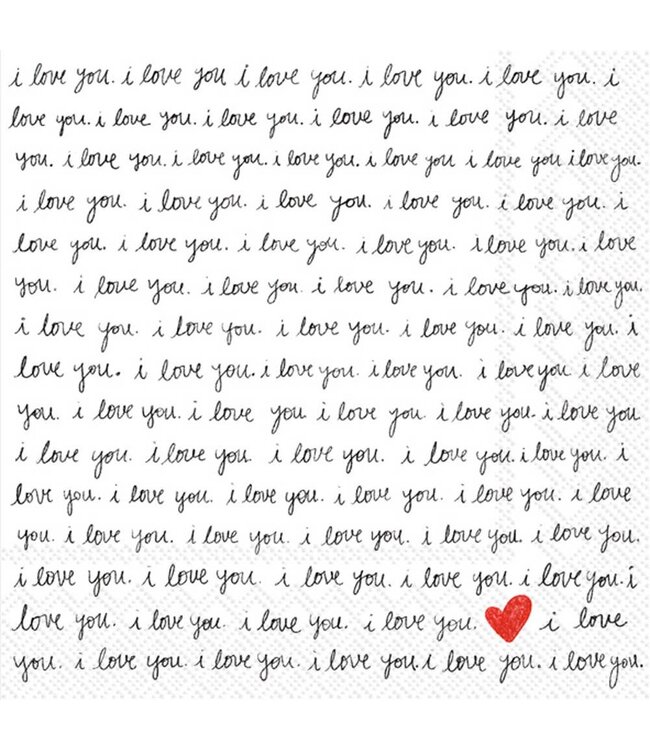 i love you. i love you i love you. i love you. i love you. i
love you. i love you. i love you. i love you. i love you. i love
you. i love you. i love you. i love you. i love you i love you i love you.
i love you. i love you. i love you. i love you. i love you. i
love you. i love you. i love you. i love you. i love you. i love
you. i love you. i love you. i love you. i love you. i love you.
i love you. i love you. i love you. i love you. i love you. i
love you. i love you. i love you. i love you. i love you i love
you. i love you. i love you i love you i love you. i love you
i love you. i love you. i love you. i love you. i love you. i
love you. i love you. i love you. i love you. i love you. i love
you. i love you. i love you. i love you. i love you. i love you.
i love you. i love you. i love you. i love you. i love you. i
love you. i love you. i love you. i love you. i love
you. i love you. i love you. i love you. i love you. i love you.